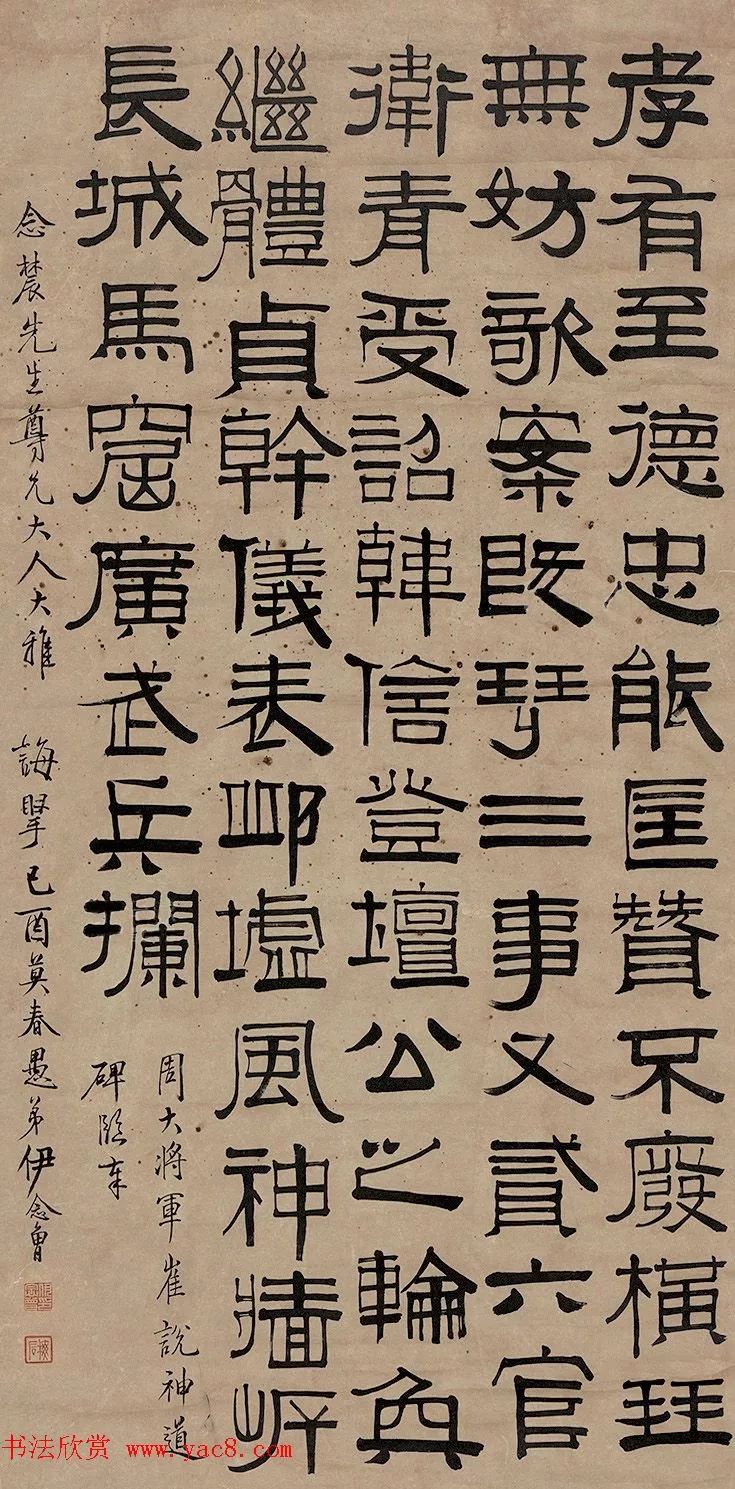 孝有至德忠能匡贊不廢橫琴
無妨歌案既珥三事又貳六官
衛青受詔韓信登壇公之輪奐
繼體貞幹儀表邱墟風神牆岸
長城馬窟廣武兵攔
周大將軍崔說神道
碑臨奉
念農先生尊兄大人大雅 誨擊己酉莫春愚弟伊念曾
书法欣赏 www.yac8.com